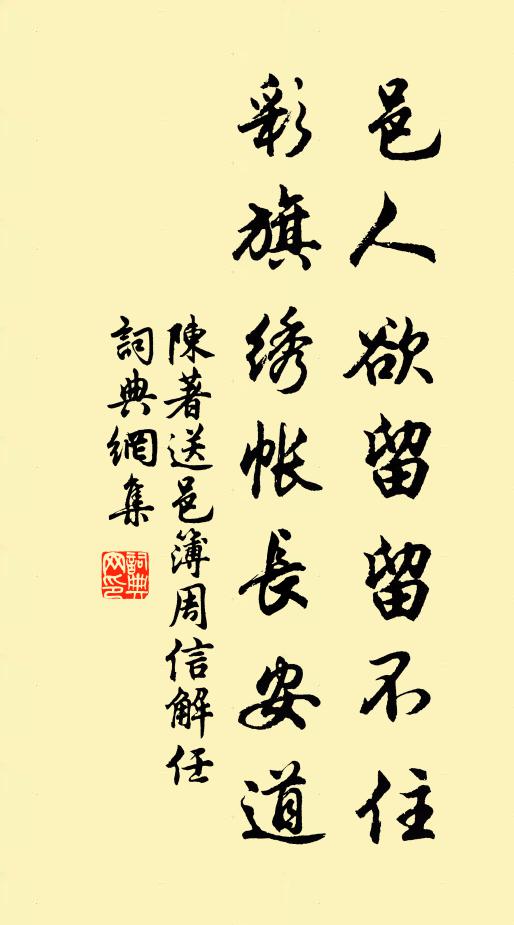 邑人欲留留不住
彩旗绣帐長安道
陳著送邑簿周信解任
詞典網集
詞典网印